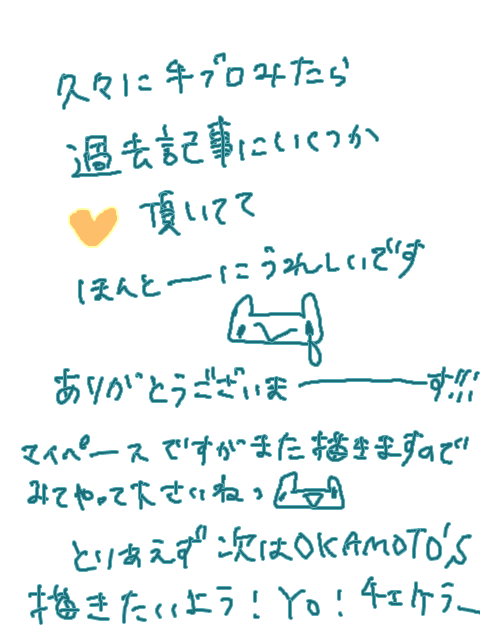 久々に手ブロみたら
過去記事にいくつか
頂いてて
ほんとーにうれしいです
ありがとうございまーーす!!!
マイペースですがまた描きますので
みてやって下さいね
とりあえず次はOKAMOTO'S
描きたいよう!Yo!チェケラ_